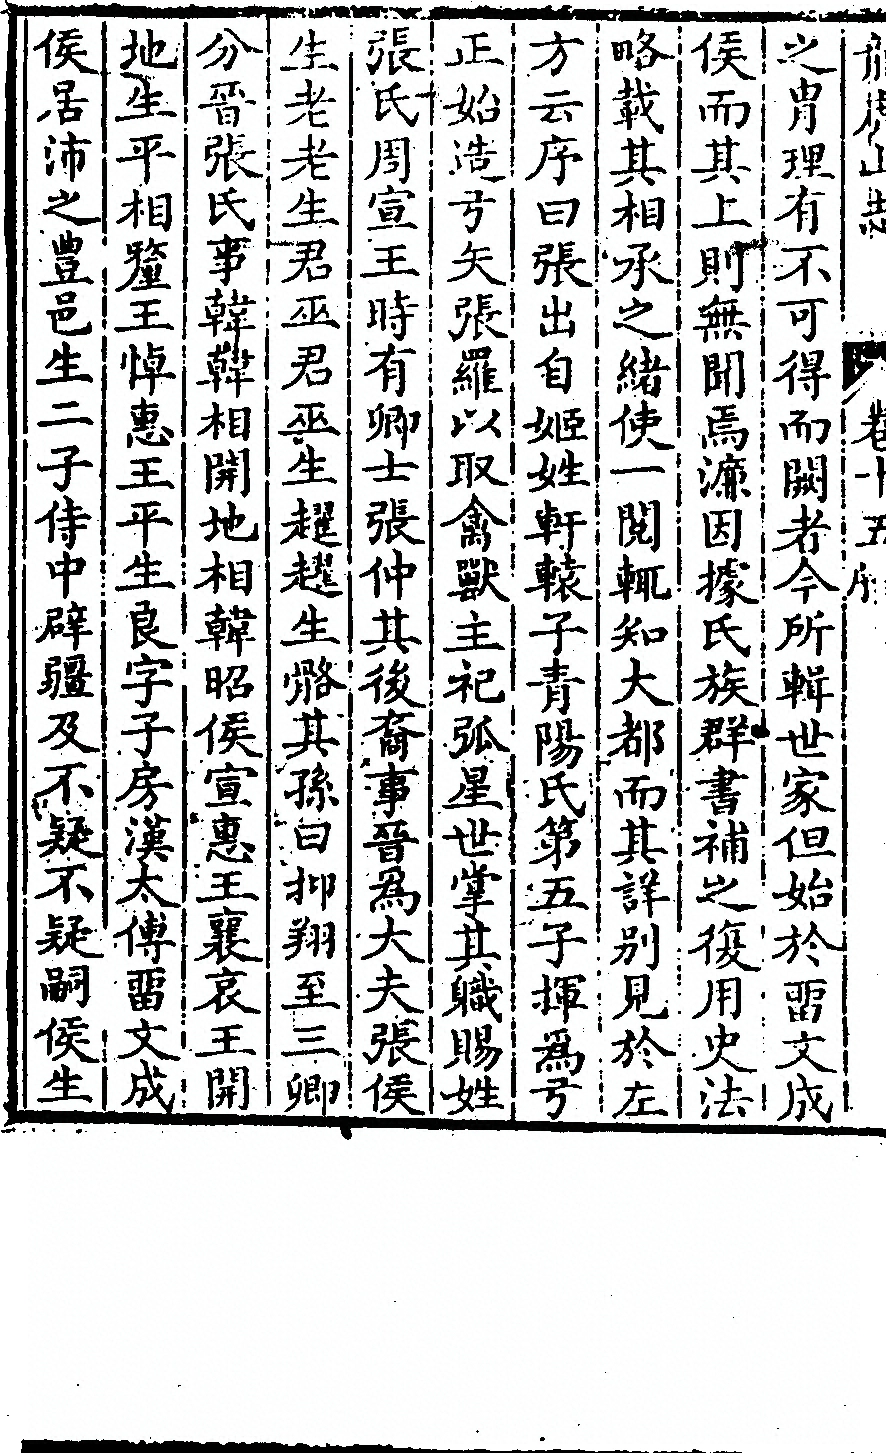 龍虎山志 卷十五 序
之胄理有不可得而闕者今所輯世家但始於畱文成
侯而其上則無聞焉濂因據氏族群書補之復用史法
略載其相承之緒使一閱輒知大都而其詳別見於左
方云序曰張出自姬姓軒轅子青陽氏第五子揮為弓
正始造弓矢張羅以取禽獸主祀弧星世掌其職賜姓
張氏周宣王時有卿士張仲其後裔事晉為大夫張侯
生老老生君巫君巫生趯趯生骼其孫曰抑朔至三卿
分晉張氏事韓韓相開地相韓昭侯宣惠王襄哀王開
地生平相釐王悼惠王平生良字子房漢太傅畱文成
侯居沛之豊邑生二子侍中辟疆及不疑不疑嗣侯生